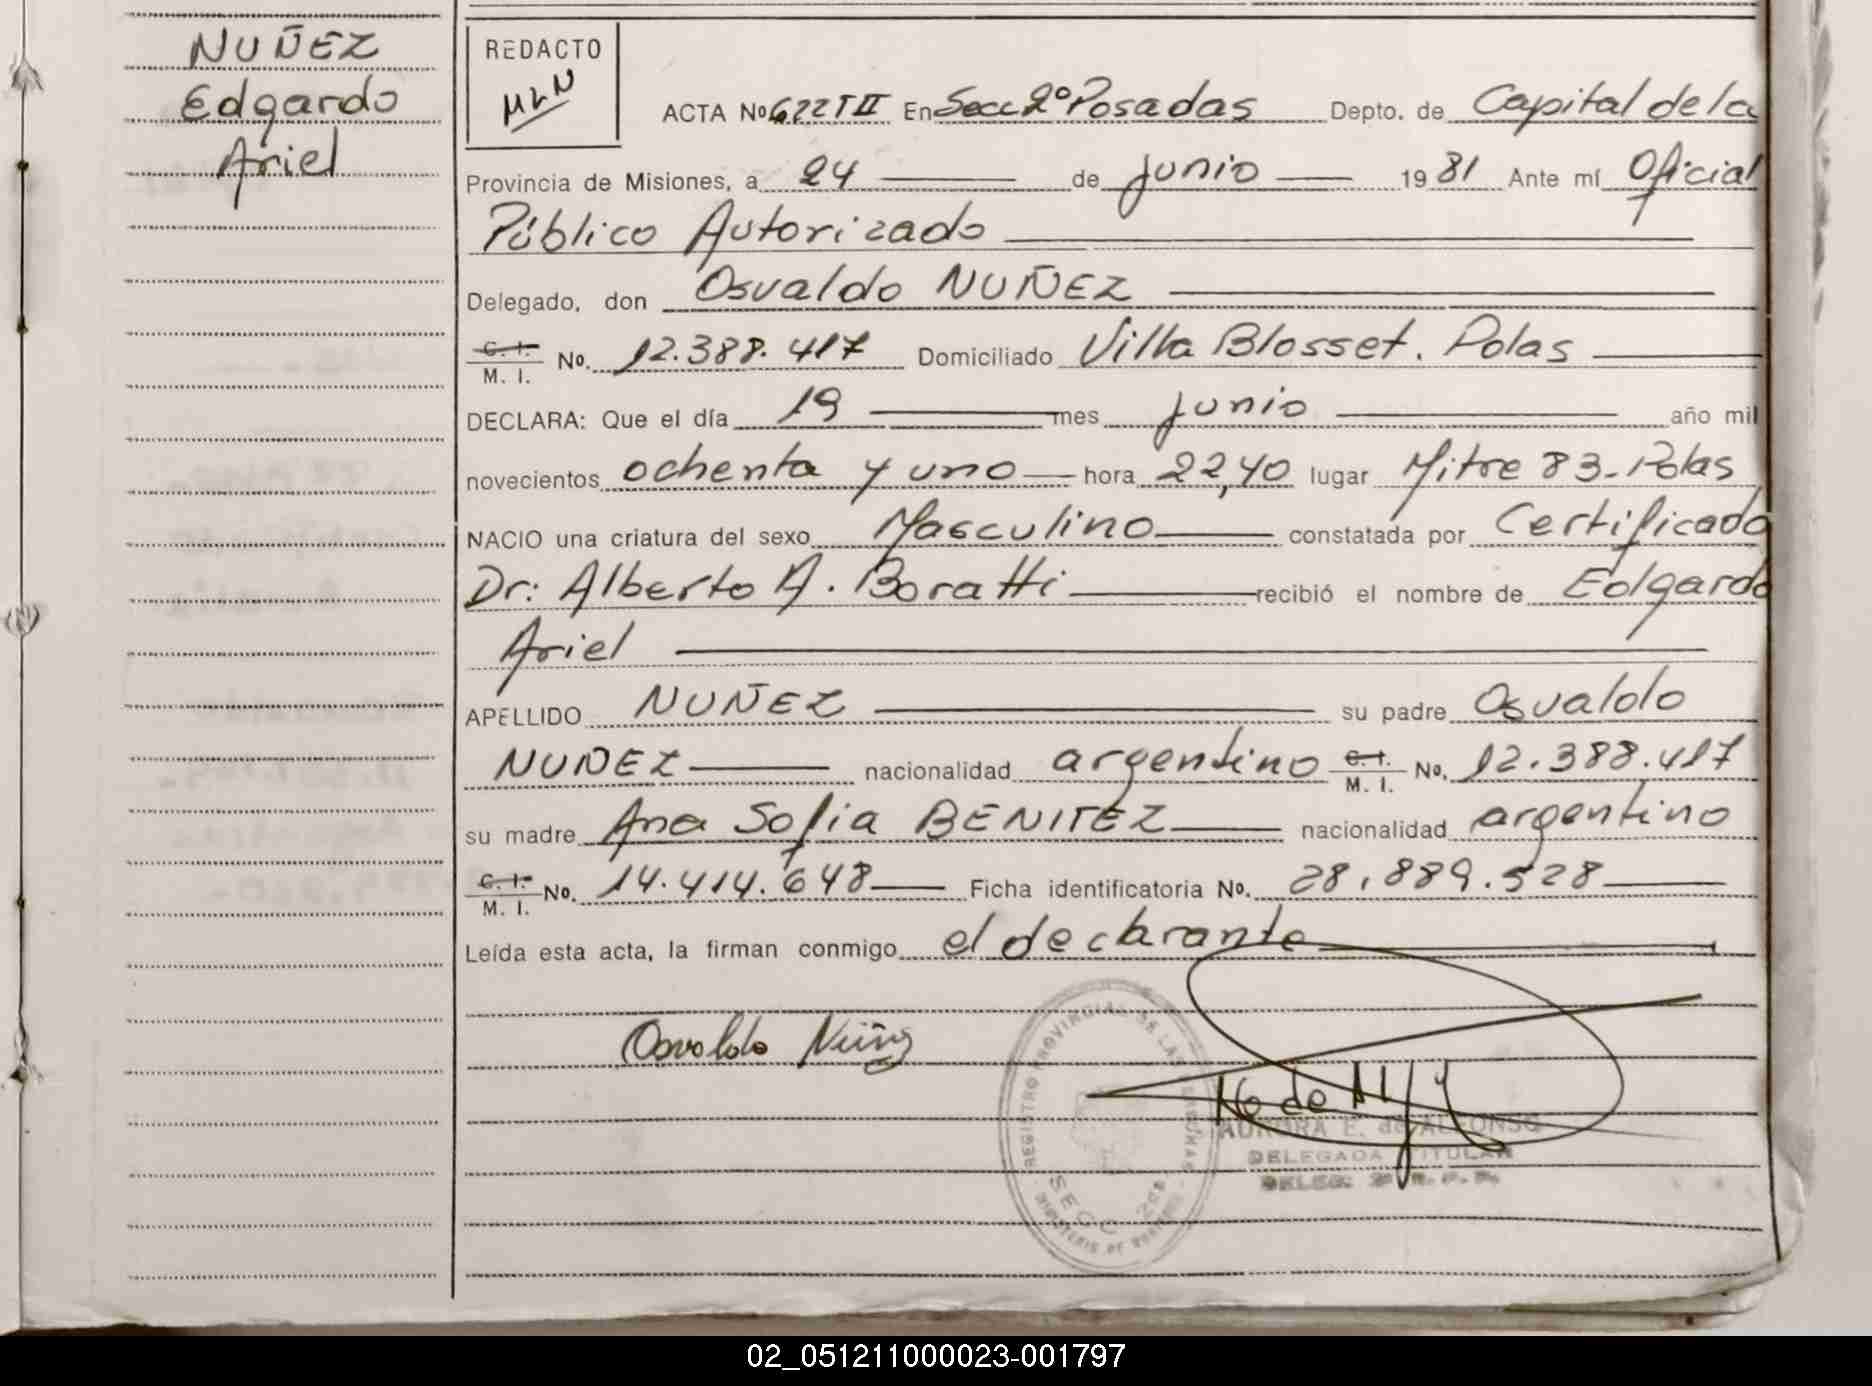 NUÑEZ
Edgardo
Ariel
REDACTO
MLN
ACTA No 622 T II En Secc 2º Posadas Depto. de Capital de la
Provincia de Misiones, a 24 de junio 1981 Ante mí Oficial
Público Autorizado
Delegado, don Osvaldo NUÑEZ
C. I. / M. I. No. 12.388.417 Domiciliado Villa Blosset. Pdas
DECLARA: Que el día 19 mes junio año mil
novecientos ochenta y uno hora 22,40 lugar Mitre 83-Pdas
NACIO una criatura del sexo Masculino constatada por Certificado
Dr: Alberto A. Boratti recibió el nombre de Edgardo
Ariel
APELLIDO NUÑEZ su padre Osvaldo
NUÑEZ nacionalidad argentino C. I. / M. I. No. 12.388.417
su madre Ana Sofia BENITEZ nacionalidad argentino
C. I. / M. I. No. 14.414.648 Ficha identificatoria No. 28.889.528
Leída esta acta, la firman conmigo el declarante
Osvaldo Núñez
REGISTRO PROVINCIAL DE LAS PERSONAS
AURORA E. de ALFONSO
DELEGADA TITULAR
02_051211000023-001797